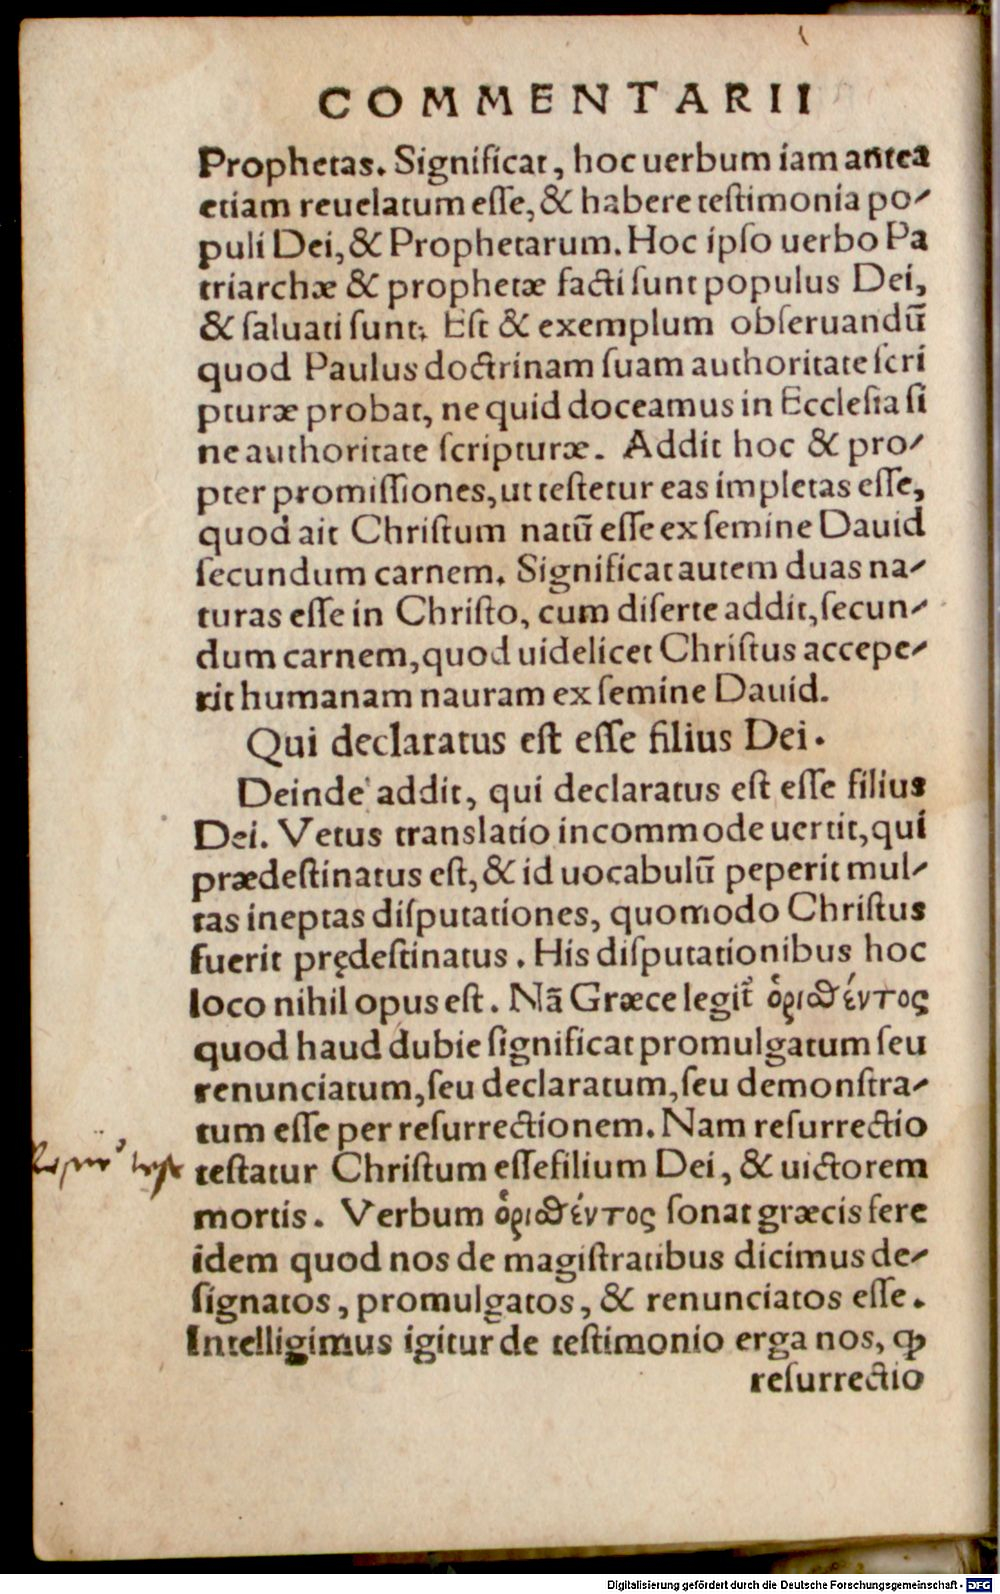 COMMENTARII
Prophetas. Significat, hoc uerbum iam antea
etiam reuelatum eſſe, & habere teſtimonia po⸗
puli Dei, & Prophetarum. Hoc ipſo uerbo Pa
triarchæ & prophetæ facti ſunt populus Dei,
& ſaluati ſunt. Eſt & exemplum obſeruandū
quod Paulus doctrinam ſuam authoritate ſcri
pturæ probat, ne quid doceamus in Eccleſia ſi
ne authoritate ſcripturæ. Addit hoc & pro⸗
pter promiſſiones, ut teſtetur eas impletas eſſe,
quod ait Chriſtum natū eſſe ex ſemine Dauid
ſecundum carnem. Significat autem duas na⸗
turas eſſe in Chriſto, cum diſerte addit, ſecun⸗
dum carnem, quod uidelicet Chriſtus accepe⸗
rit humanam nauram ex ſemine Dauid.
Qui declaratus eſt eſſe filius Dei.
Deinde addit, qui declaratus eſt eſſe filius
Dei. Vetus translatio incommode uertit, qui
prædeſtinatus eſt, & id uocabulū peperit mul⸗
tas ineptas diſputationes, quomodo Chriſtus
fuerit prędeſtinatus. His diſputationibus hoc
loco nihil opus eſt. Nā Græce legit᷑ ὁριϑέντος
quod haud dubie ſignificat promulgatum ſeu
renunciatum, ſeu declaratum, ſeu demonſtra⸗
tum eſſe per reſurrectionem. Nam reſurrectio
teſtatur Chriſtum eſſe filium Dei, & uictorem
mortis. Verbum ὁριϑέντος ſonat græcis fere
idem quod nos de magiſtratibus dicimus de⸗
ſignatos, promulgatos, & renunciatos eſſe.
Intelligimus igitur de teſtimonio erga nos, ꝙ
reſurrectio
Digitalisierung gefördert durch die Deutsche Forschungsgemeinschaft - DFG